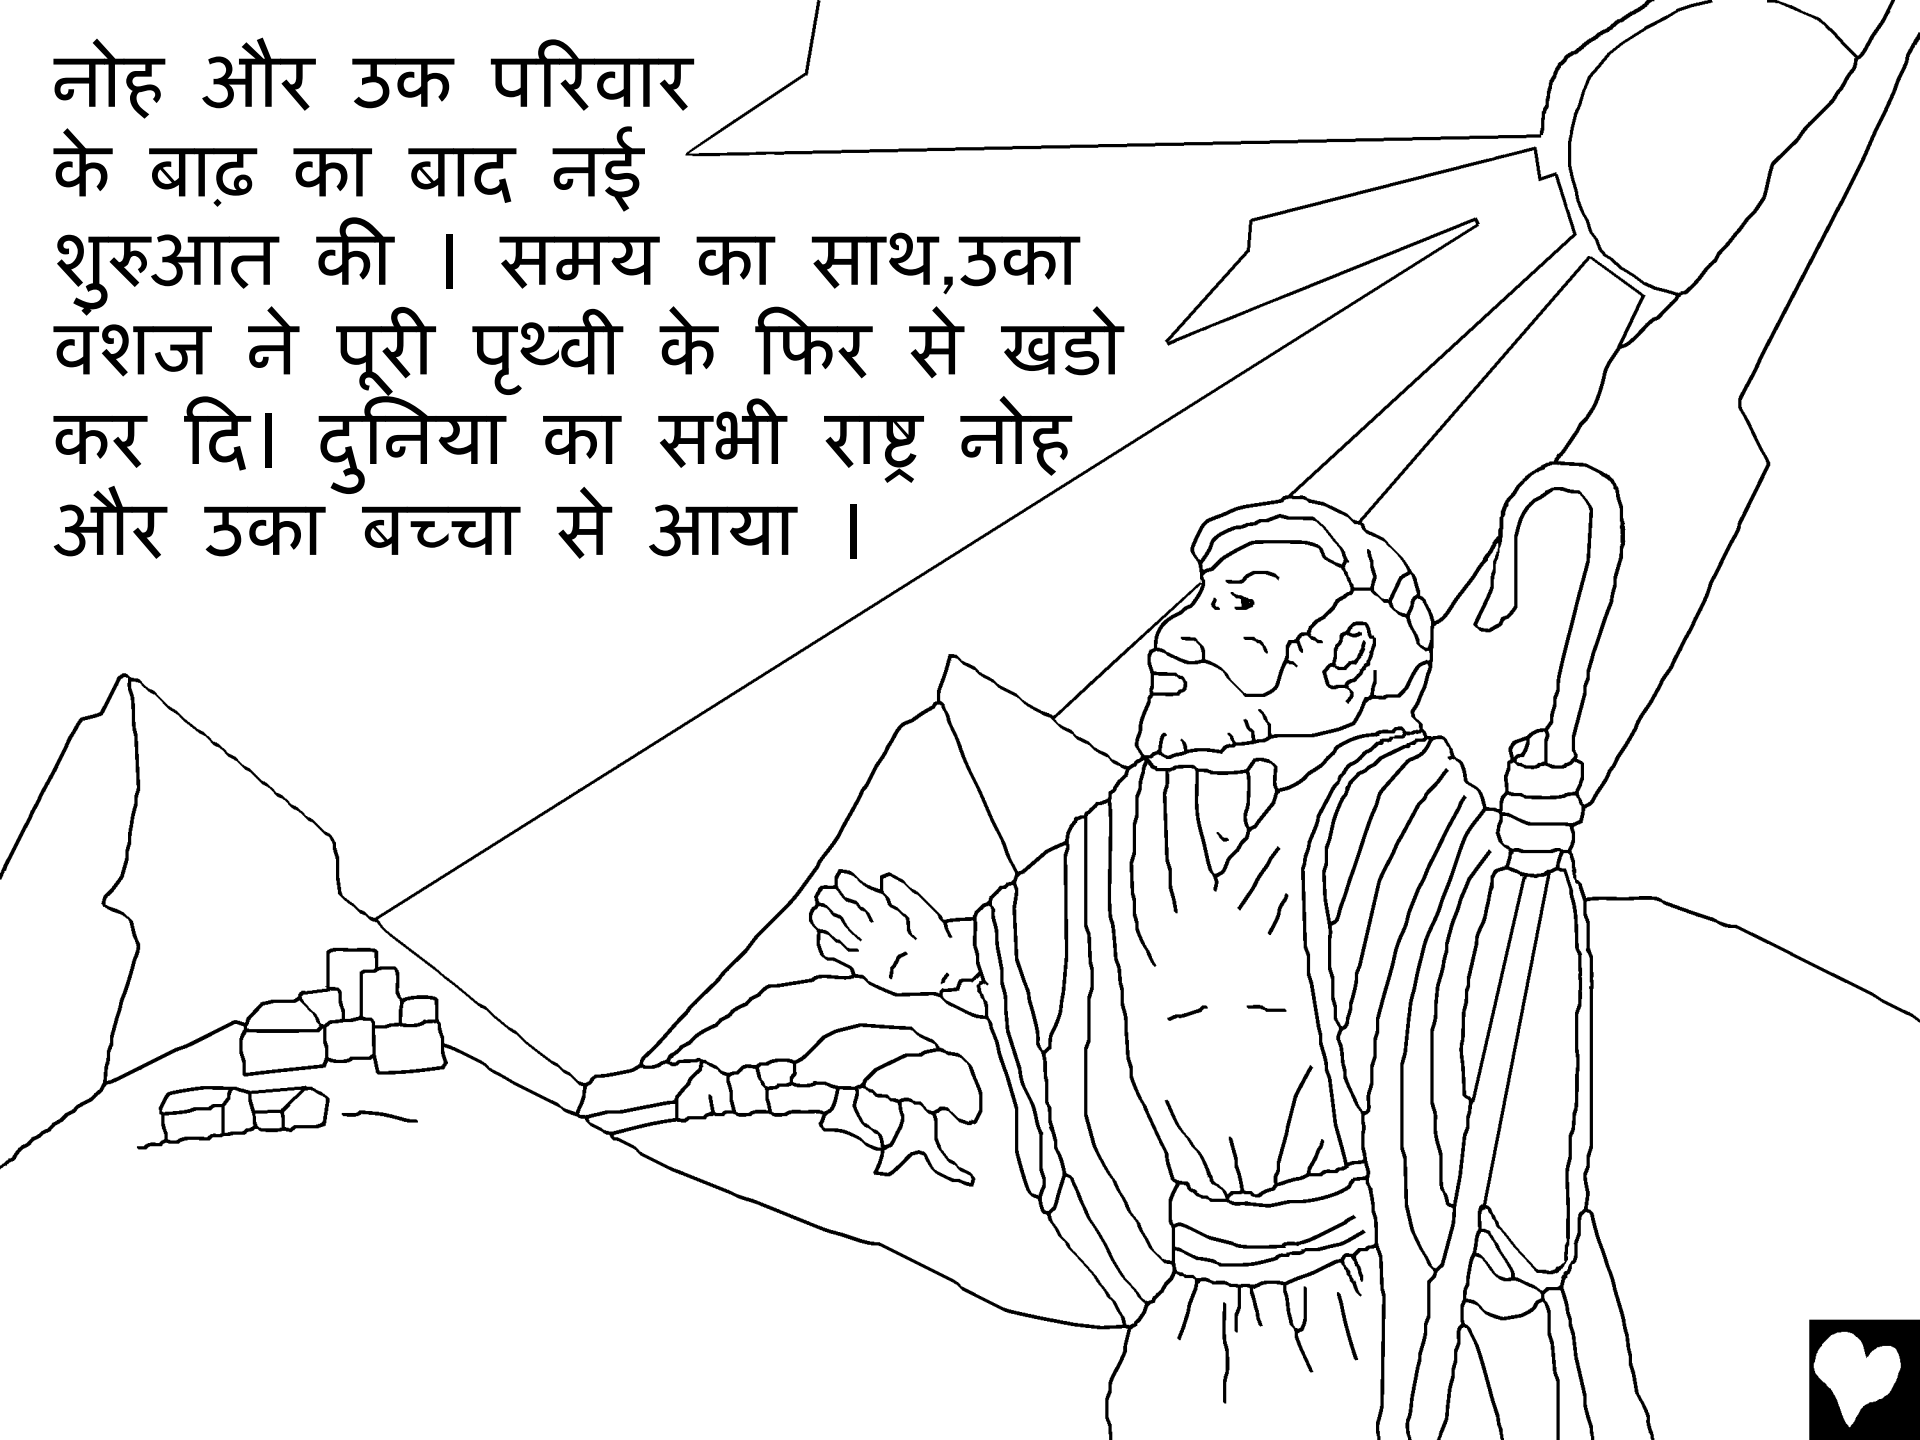 नोह और उक परिवार
के बाढ़ का बाद नई
शुरुआत की । समय का साथ,उका
वंशज ने पूरी पृथ्वी के फिर से खडो
कर दि। दुनिया का सभी राष्ट्र नोह
और उका बच्चा से आया ।